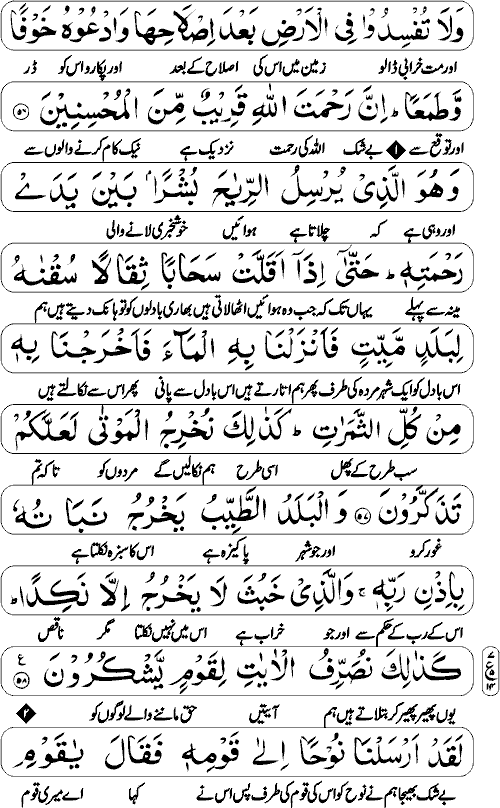 وَلَا تُفْسِدُوْا فِی الْاَرْضِ بَعْدَ اِصْلَاحِهَا وَادْعُوْهُ خَوْفًا
اور مت خرابی ڈالو زمین میں اس کی اصلاح کے بعد اور پکارو اس کو ڈر
وَّطَمَعًا ؕ اِنَّ رَحْمَتَ اللّٰهِ قَرِیْبٌ مِّنَ الْمُحْسِنِیْنَ ۝۵۶
اور توقع سے ۱ بے شک اللہ کی رحمت نزدیک ہے نیک کام کرنے والوں سے
وَهُوَ الَّذِیْ یُرْسِلُ الرِّیٰحَ بُشْرًۢا بَیْنَ یَدَیْ
اور وہی ہے کہ چلاتا ہے ہوائیں خوشخبری لانے والی
رَحْمَتِهٖ ؕ حَتّٰۤی اِذَاۤ اَقَلَّتْ سَحَابًا ثِقَالًا سُقْنٰهُ
مینہ سے پہلے یہاں تک کہ جب وہ ہوائیں اٹھا لاتی ہیں بھاری بادلوں کو تو ہانک دیتے ہیں ہم
لِبَلَدٍ مَّیِّتٍ فَاَنْزَلْنَا بِهِ الْمَآءَ فَاَخْرَجْنَا بِهٖ
اس بادل کو ایک شہر مردہ کی طرف پھر ہم اتارتے ہیں اس بادل سے پانی پھر اس سے نکالتے ہیں
مِنْ کُلِّ الثَّمَرٰتِ ؕ کَذٰلِكَ نُخْرِجُ الْمَوْتٰی لَعَلَّکُمْ
سب طرح کے پھل اسی طرح ہم نکالیں گے مردوں کو تاکہ تم
تَذَکَّرُوْنَ ۝۵۷ وَالْبَلَدُ الطَّیِّبُ یَخْرُجُ نَبَاتُهٗ
غور کرو اور جو شہر پاکیزہ ہے اس کا سبزہ نکلتا ہے
بِاِذْنِ رَبِّهٖ ۚ وَالَّذِیْ خَبُثَ لَا یَخْرُجُ اِلَّا نَکِدًا ؕ
اس کے رب کے حکم سے اور جو خراب ہے اس میں نہیں نکلتا مگر ناقص
کَذٰلِكَ نُصَرِّفُ الْاٰیٰتِ لِقَوْمٍ یَّشْکُرُوْنَ ۝۵۸ ع
یوں پھیر پھیر کر بتلاتے ہیں ہم آیتیں حق ماننے والے لوگوں کو ۲
لَقَدْ اَرْسَلْنَا نُوْحًا اِلٰی قَوْمِهٖ فَقَالَ یٰقَوْمِ
بے شک بھیجا ہم نے نوح کو اس کی قوم کی طرف پس اس نے کہا اے میری قوم